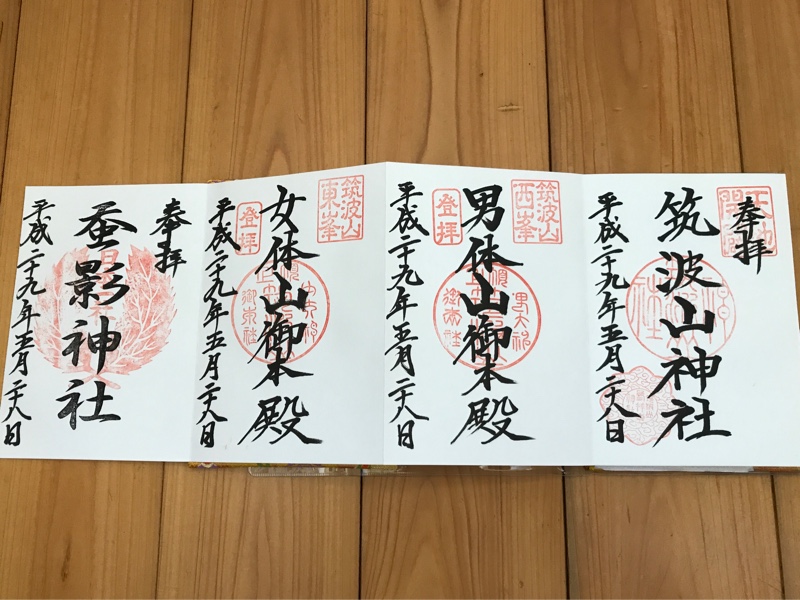 奉拝
筑波山神社
平成二十九年五月二十八日
筑波山
西峯
登拝
男体山御本殿
平成二十九年五月二十八日
筑波山
東峯
登拝
女体山御本殿
平成二十九年五月二十八日
奉拝
蚕影神社
平成二十九年五月二十八日